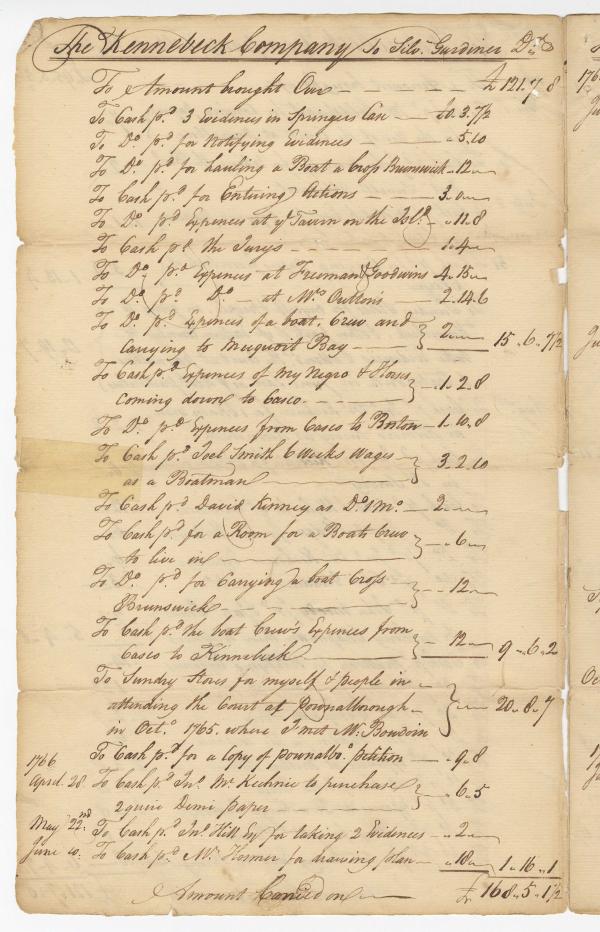 The Kennebeck Company To Silv. Gardiner Dr.
To Amount brought Over - - - - - £ 121. 7 8
To Cash pd. 3 Evidences in Springers Case — £0. 3. 7 1/2
To Do. pd. for Notifying Evidences — " 5. 10
To Do. pd. for hauling a Boat a Cross Brunswick " 12 "
To Cash pd. for Entering Actions — 3. 0 "
To Do. pd. Expences at ye Tavern on the " 11. 8
To Cash pd. the Jurys - - - - 1. 4 "
To Do. pd. Expences at Freeman & Goodwins 4. 15 "
To Do. pd. Do. — at Mrs. Outtons — 2. 14. 6
To Do. pd. Expences of a boat, Crew and
Carrying to Merquoit Bay — } 2 " " 15 . 6 . 7 1/2
To Cash pd. Expences of my Negro & Horses
coming down to Casco. - - - } " 1 . 2 . 8
To Do. pd. Expences from Casco to Boston — 1. 10. 8
To Cash pd. Joel Smith 6 Weeks Wages
as a Boatman — } 3. 2. 10
To Cash pd. David Kenney as Do. 1 Mo. — 2 " "
To Cash pd. for a Room for a Boats Crew
to live in — } " 6 "
To Do. pd. for Carrying a boat Cross
Brunswick - } " 12 "
To Cash pd. the boat Crew's Expences from
Casco to Kennebeck } " 12 " 9 " 6 " 2
To Sundry Stores for myself & people in
attending the Court at Pownalborough
in Octo. 1765. where I met Mr. Bowdoin } 20 . 8 . 7
To Cash pd. for a Copy of Pownalbo. Petition — " 9. 8
1766
April 28. To Cash pd. Jno. Mc Kechnie to purchase
2 quire Demi paper — } " 6 " 5
May 22nd. To Cash pd. Jno. Hill Esq for taking 2 Evidences — " 2 "
June 10. To Cash pd. Mr. Hosmer for drawing plan — " 18 " 1 " 16 " 1
Amount Carried on — £ 168 " 5 " 1 1/2